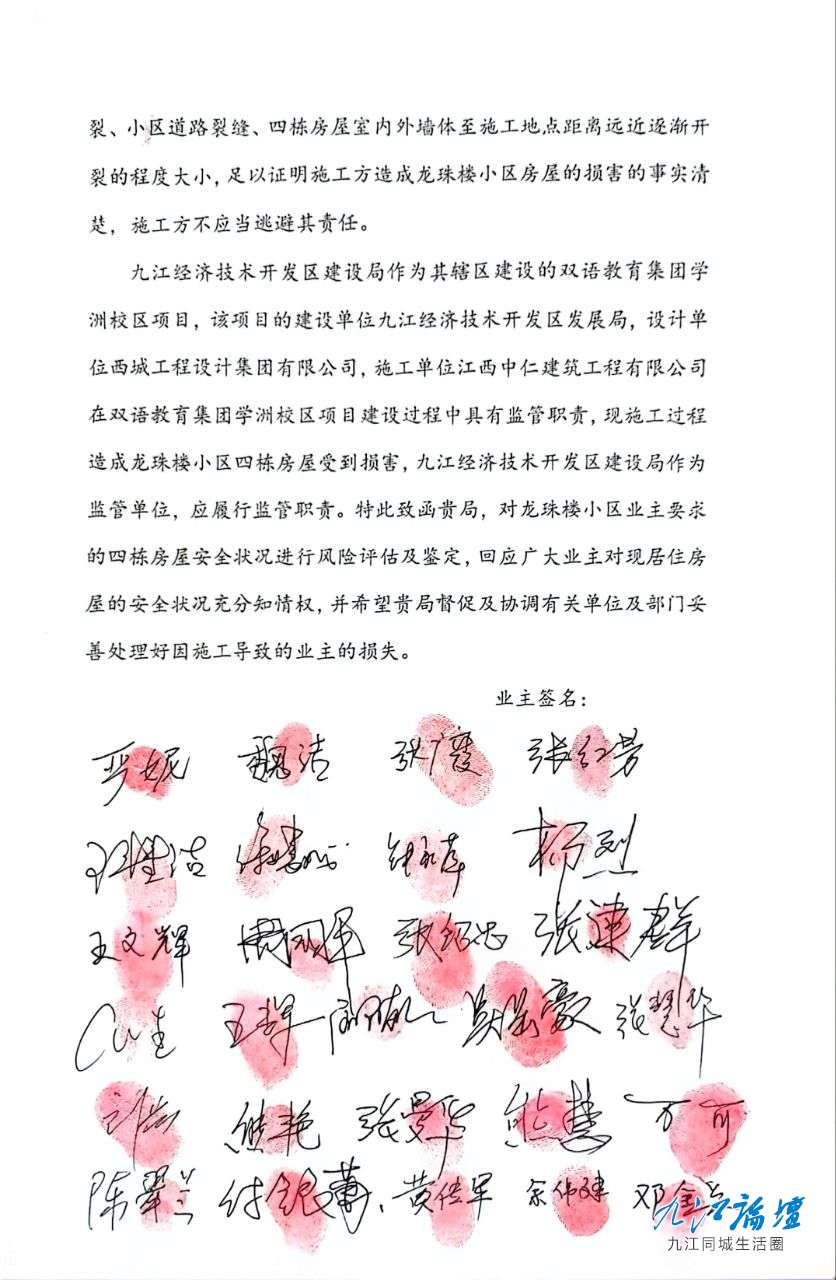 裂、小区道路裂缝、四栋房屋室内外墙体至施工地点距离远近逐渐开
裂的程度大小，足以证明施工方造成龙珠楼小区房屋的损害的事实清
楚，施工方不应当逃避其责任。
九江经济技术开发区建设局作为其辖区建设的双语教育集团学
洲校区项目，该项目的建设单位九江经济技术开发区发展局，设计单
位西城工程设计集团有限公司，施工单位江西中仁建筑工程有限公司
在双语教育集团学洲校区项目建设过程中具有监管职责，现施工过程
造成龙珠楼小区四栋房屋受到损害，九江经济技术开发区建设局作为
监管单位，应履行监管职责。特此致函贵局，对龙珠楼小区业主要求
的四栋房屋安全状况进行风险评估及鉴定，回应广大业主对现居住房
屋的安全状况充分知情权，并希望贵局督促及协调有关单位及部门妥
善处理好因施工导致的业主的损失。
业主签名：
严妮 魏洁 张广霞 张红芳
杨烈
王文辉 张绍忠 张建群
王辉 张慧华
熊艳 张曼华 熊慧 万可
陈翠兰 付银萍 黄传军 余伟建 邓金
九江论坛
九江同城生活圈